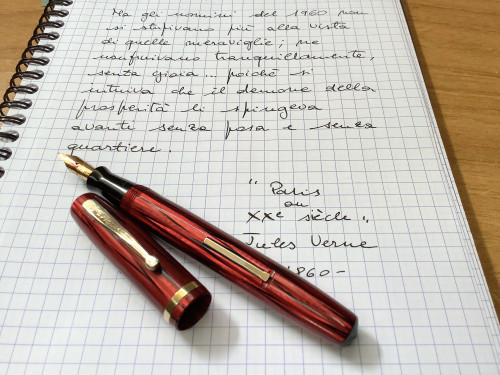 Ma gli uomini del 1960 non
si stupivano più alla vista
di quelle meraviglie; ne
usufruivano tranquillamente,
senza gioia... poiché si
intuiva che il demone della
prosperità li spingeva
avanti senza posa e senza
quartiere.
"Paris
au
XXe siècle"
Jules Verne
1860-